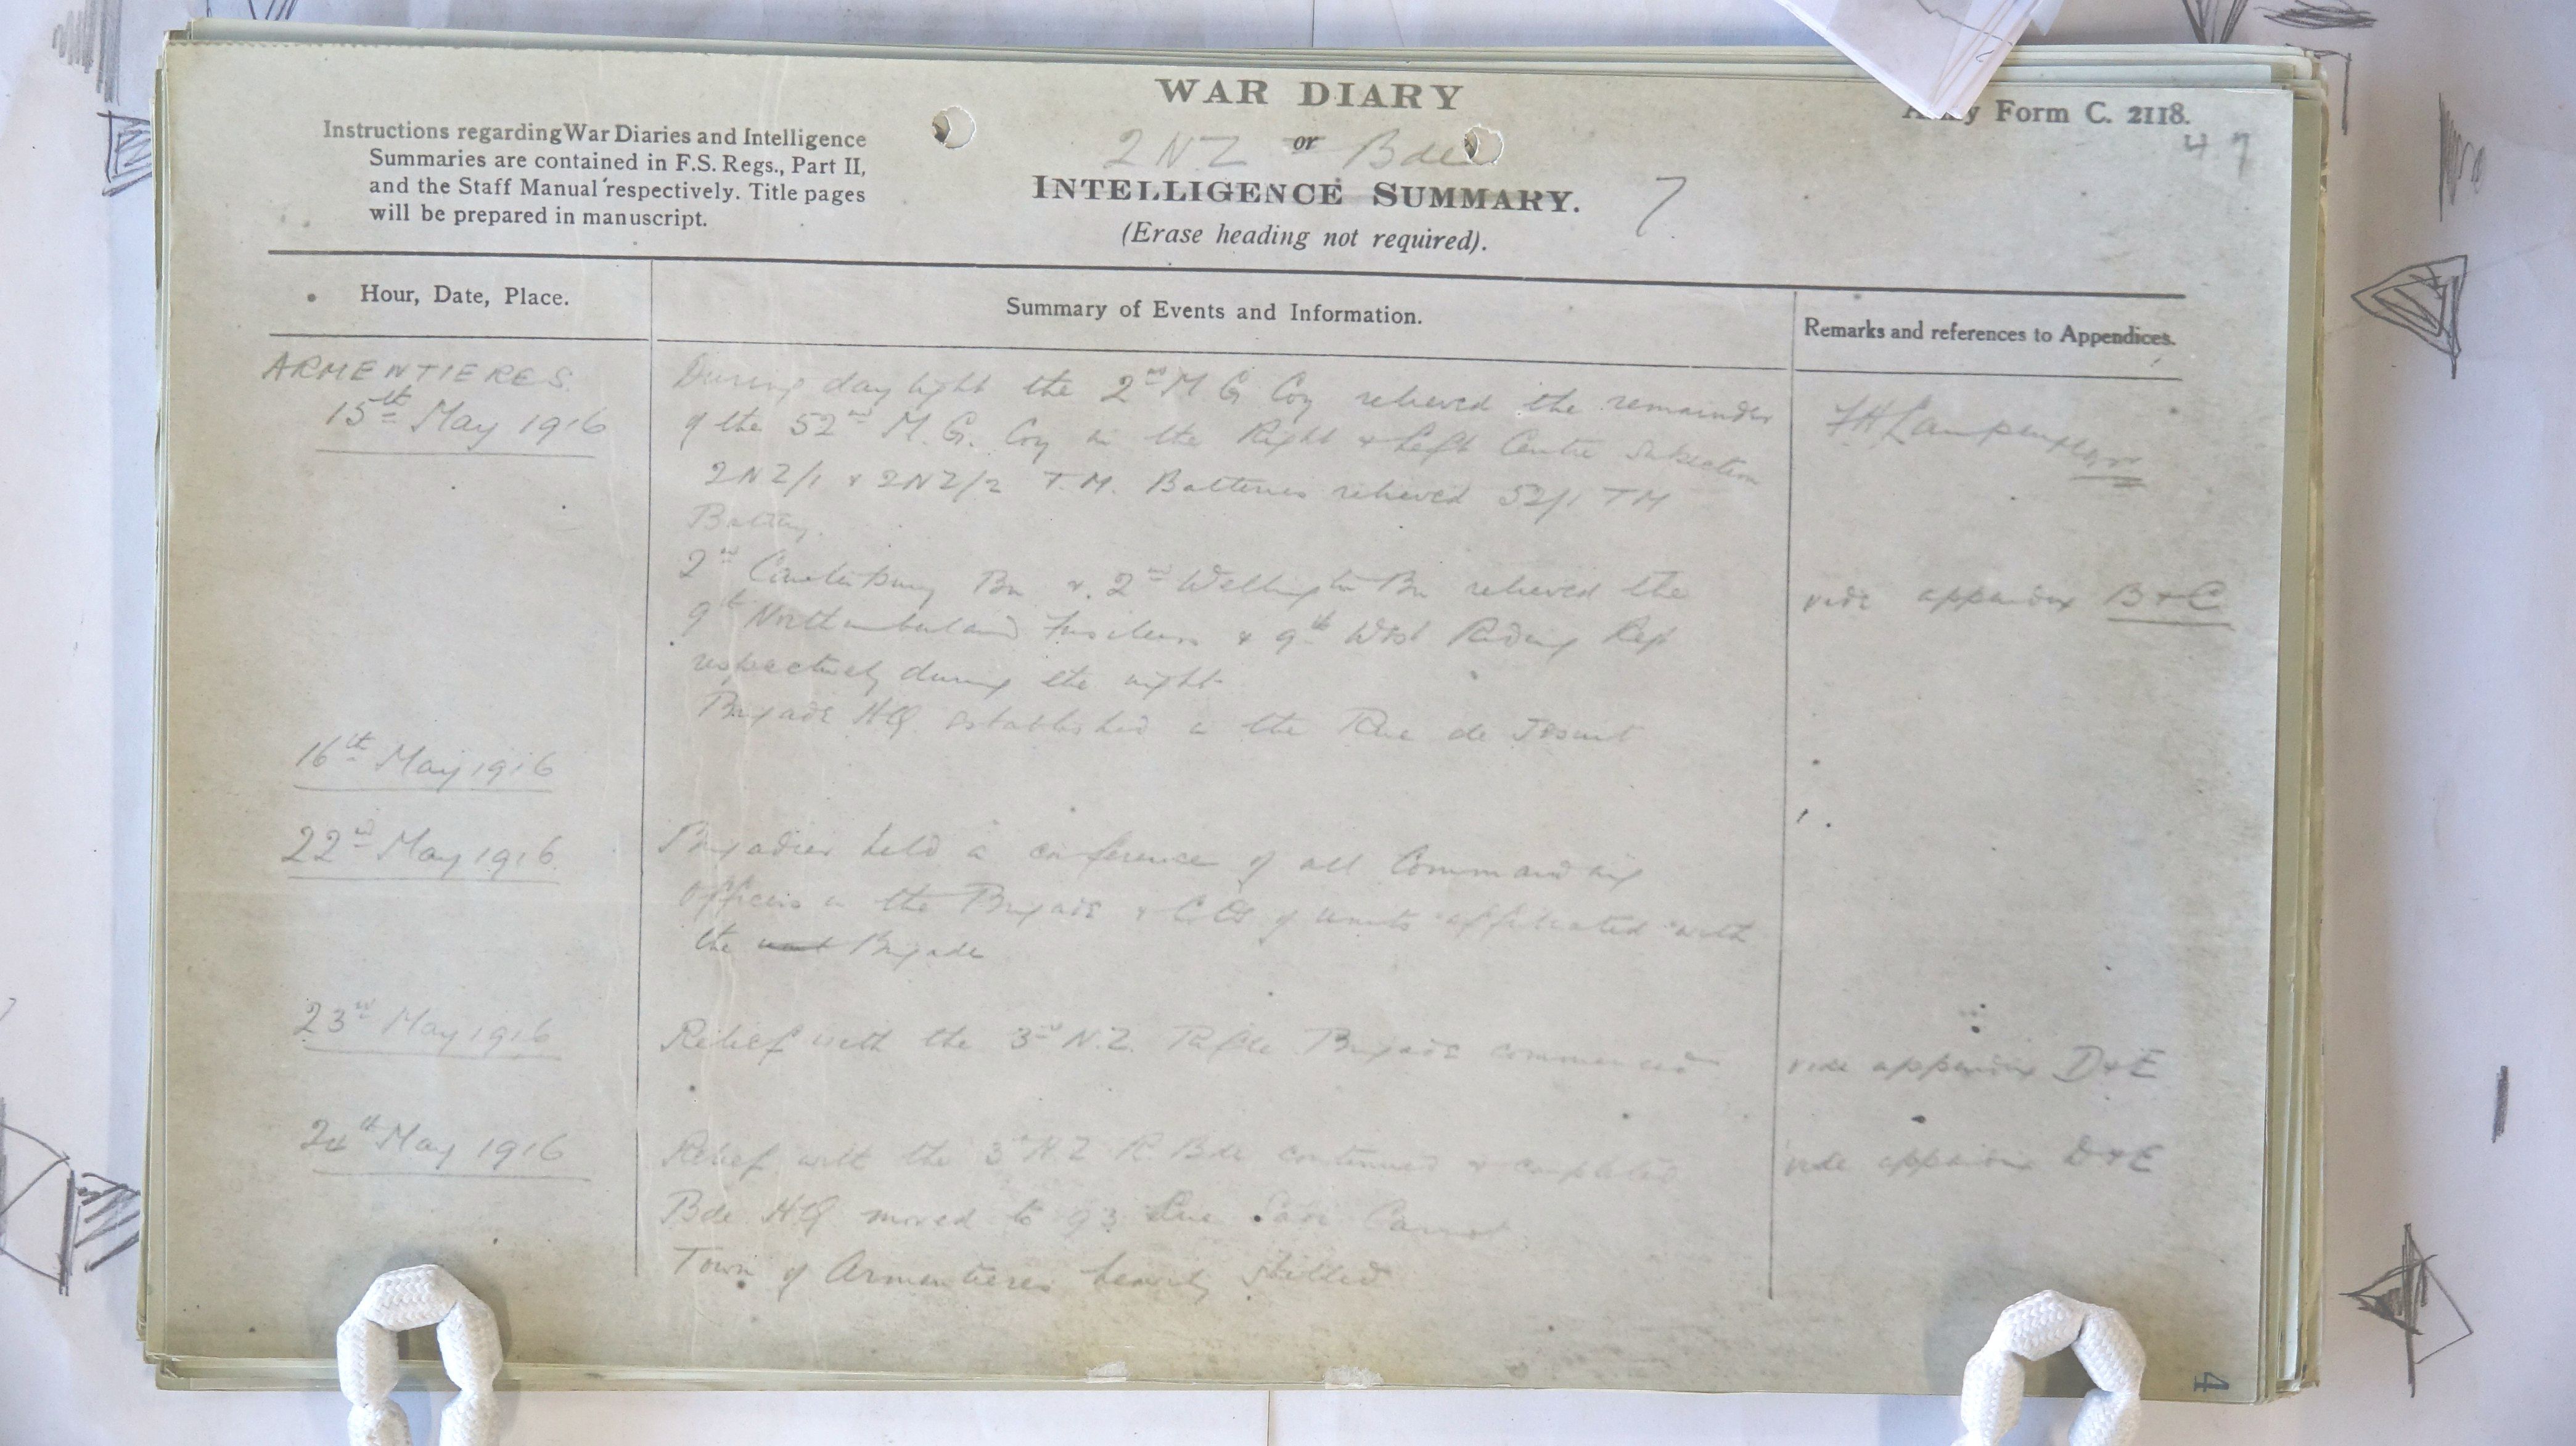 WAR DIARY
or
2 NZ Bde
INTELLIGENCE SUMMARY.
(Erase heading not required).
7.
Instructions regarding War Diaries and Intelligence
Summaries are contained in F.S. Regs., Part II,
and the Staff Manual respectively. Title pages
will be prepared in manuscript.
Form C. 2118.
47
Hour, Date, Place.
Summary of Events and Information.
Remarks and references to Appendices.
ARMENTIERES.
15th May 1916
During day light the 2nd M G Coy relieved the remainder
of the 52nd M. G. Coy in the Right & Left Centre Subsection
2NZ/1 & 2NZ/2 T.M. Batteries relieved 52/1 TM
Battery.
2nd Canterbury Bn & 2nd Wellington Bn relieved the
vide appendix B & C
9th Northumberland Fusiliers & 9th West Riding Regt
respectively during the night
Brigade HQ established in the Rue de Jesuit
16th May 1916
22nd May 1916
Brigadier held a conference of all Commanding
Officers in the Brigade & COs of units affiliated with
the Brigade
23rd May 1916
Relief with the 3rd N.Z. Rifle Brigade commenced
vide appendix D & E
24th May 1916
Relief with the 3rd N Z R Bde continued & completed
vide appendix D & E
Bde HQ moved to 93 Rue Sadi Carnot
Town of Armentieres heavily shelled
4